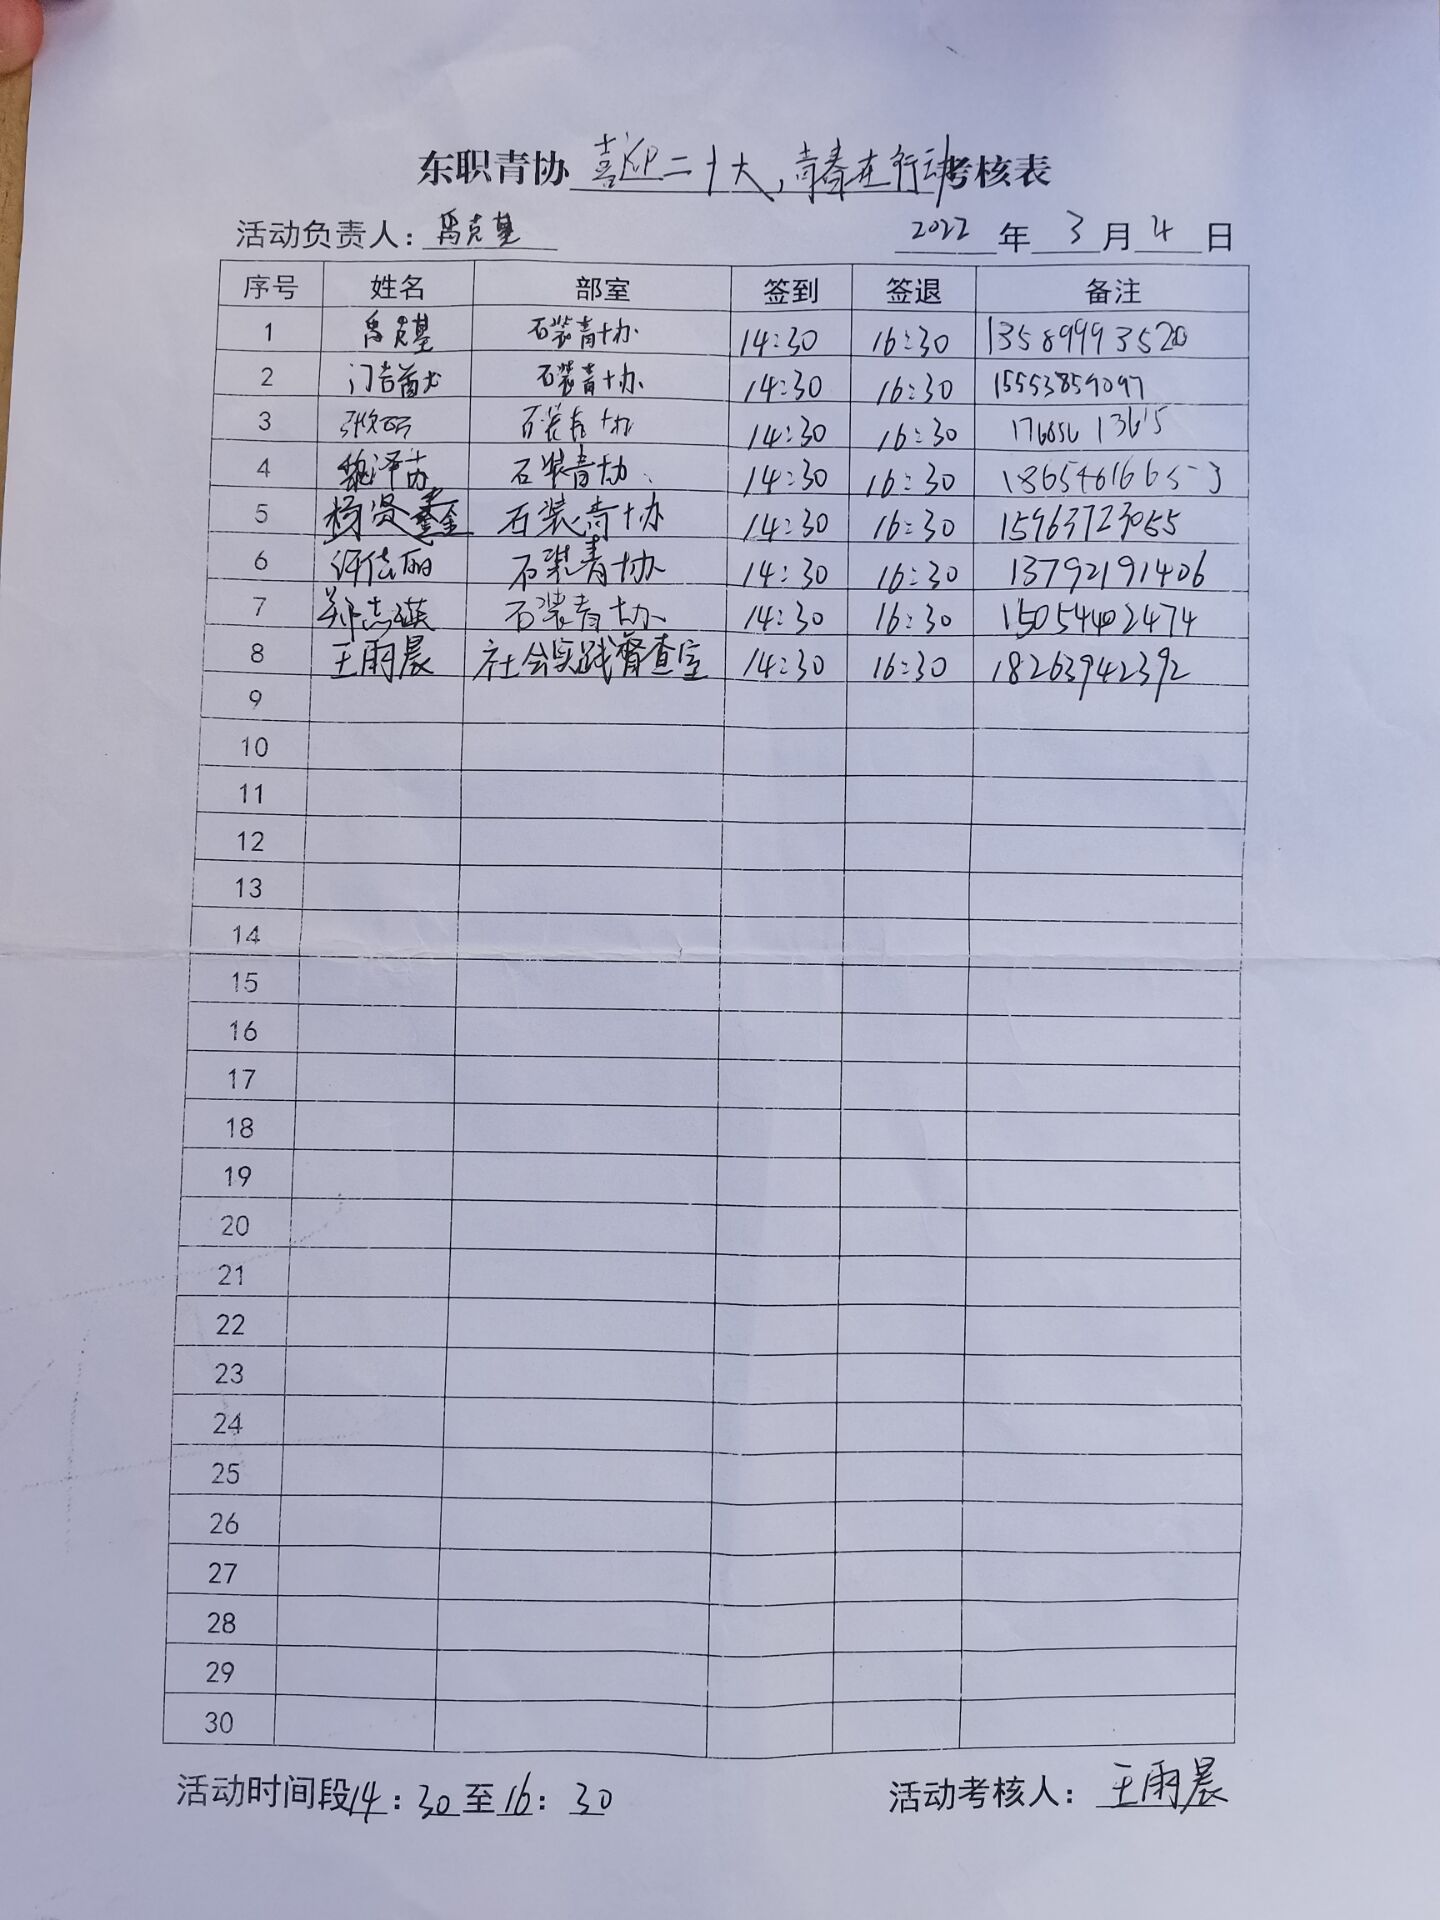 东职青协 喜迎二十大,青春在行动 考核表
活动负责人: 禹克基 2022 年 3 月 4 日
序号 姓名 部室 签到 签退 备注
1 禹克基 石装青协 14:30 16:30 13589993520
2 石装青协 14:30 16:30 15553859097
3 石装青协 14:30 16:30
4 石装青协 14:30 16:30
5 杨贤鑫 石装青协 14:30 16:30 15963723055
6 石装青协 14:30 16:30 13792191406
7 郑志祺 石装青协 14:30 16:30 15054402474
8 王雨晨 社会实践督查室 14:30 16:30 18263942392
9
10
11
12
13
14
15
16
17
18
19
20
21
22
23
24
25
26
27
28
29
30
活动时间段14:30至16:30 活动考核人: 王雨晨